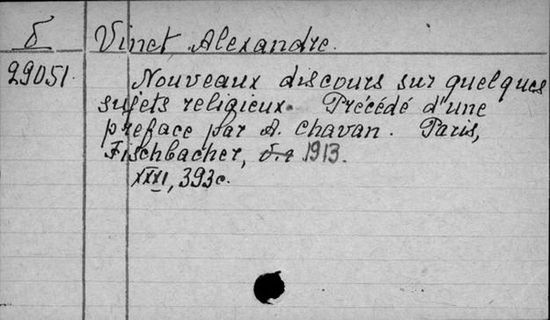 б Vinet Alexandre.
29051. Nouveaux discours sur quelques
sujets religieux. Précédé d'une
preface par A. Chavan. Paris,
Fischbacher, 1913.
XXXI, 393c.